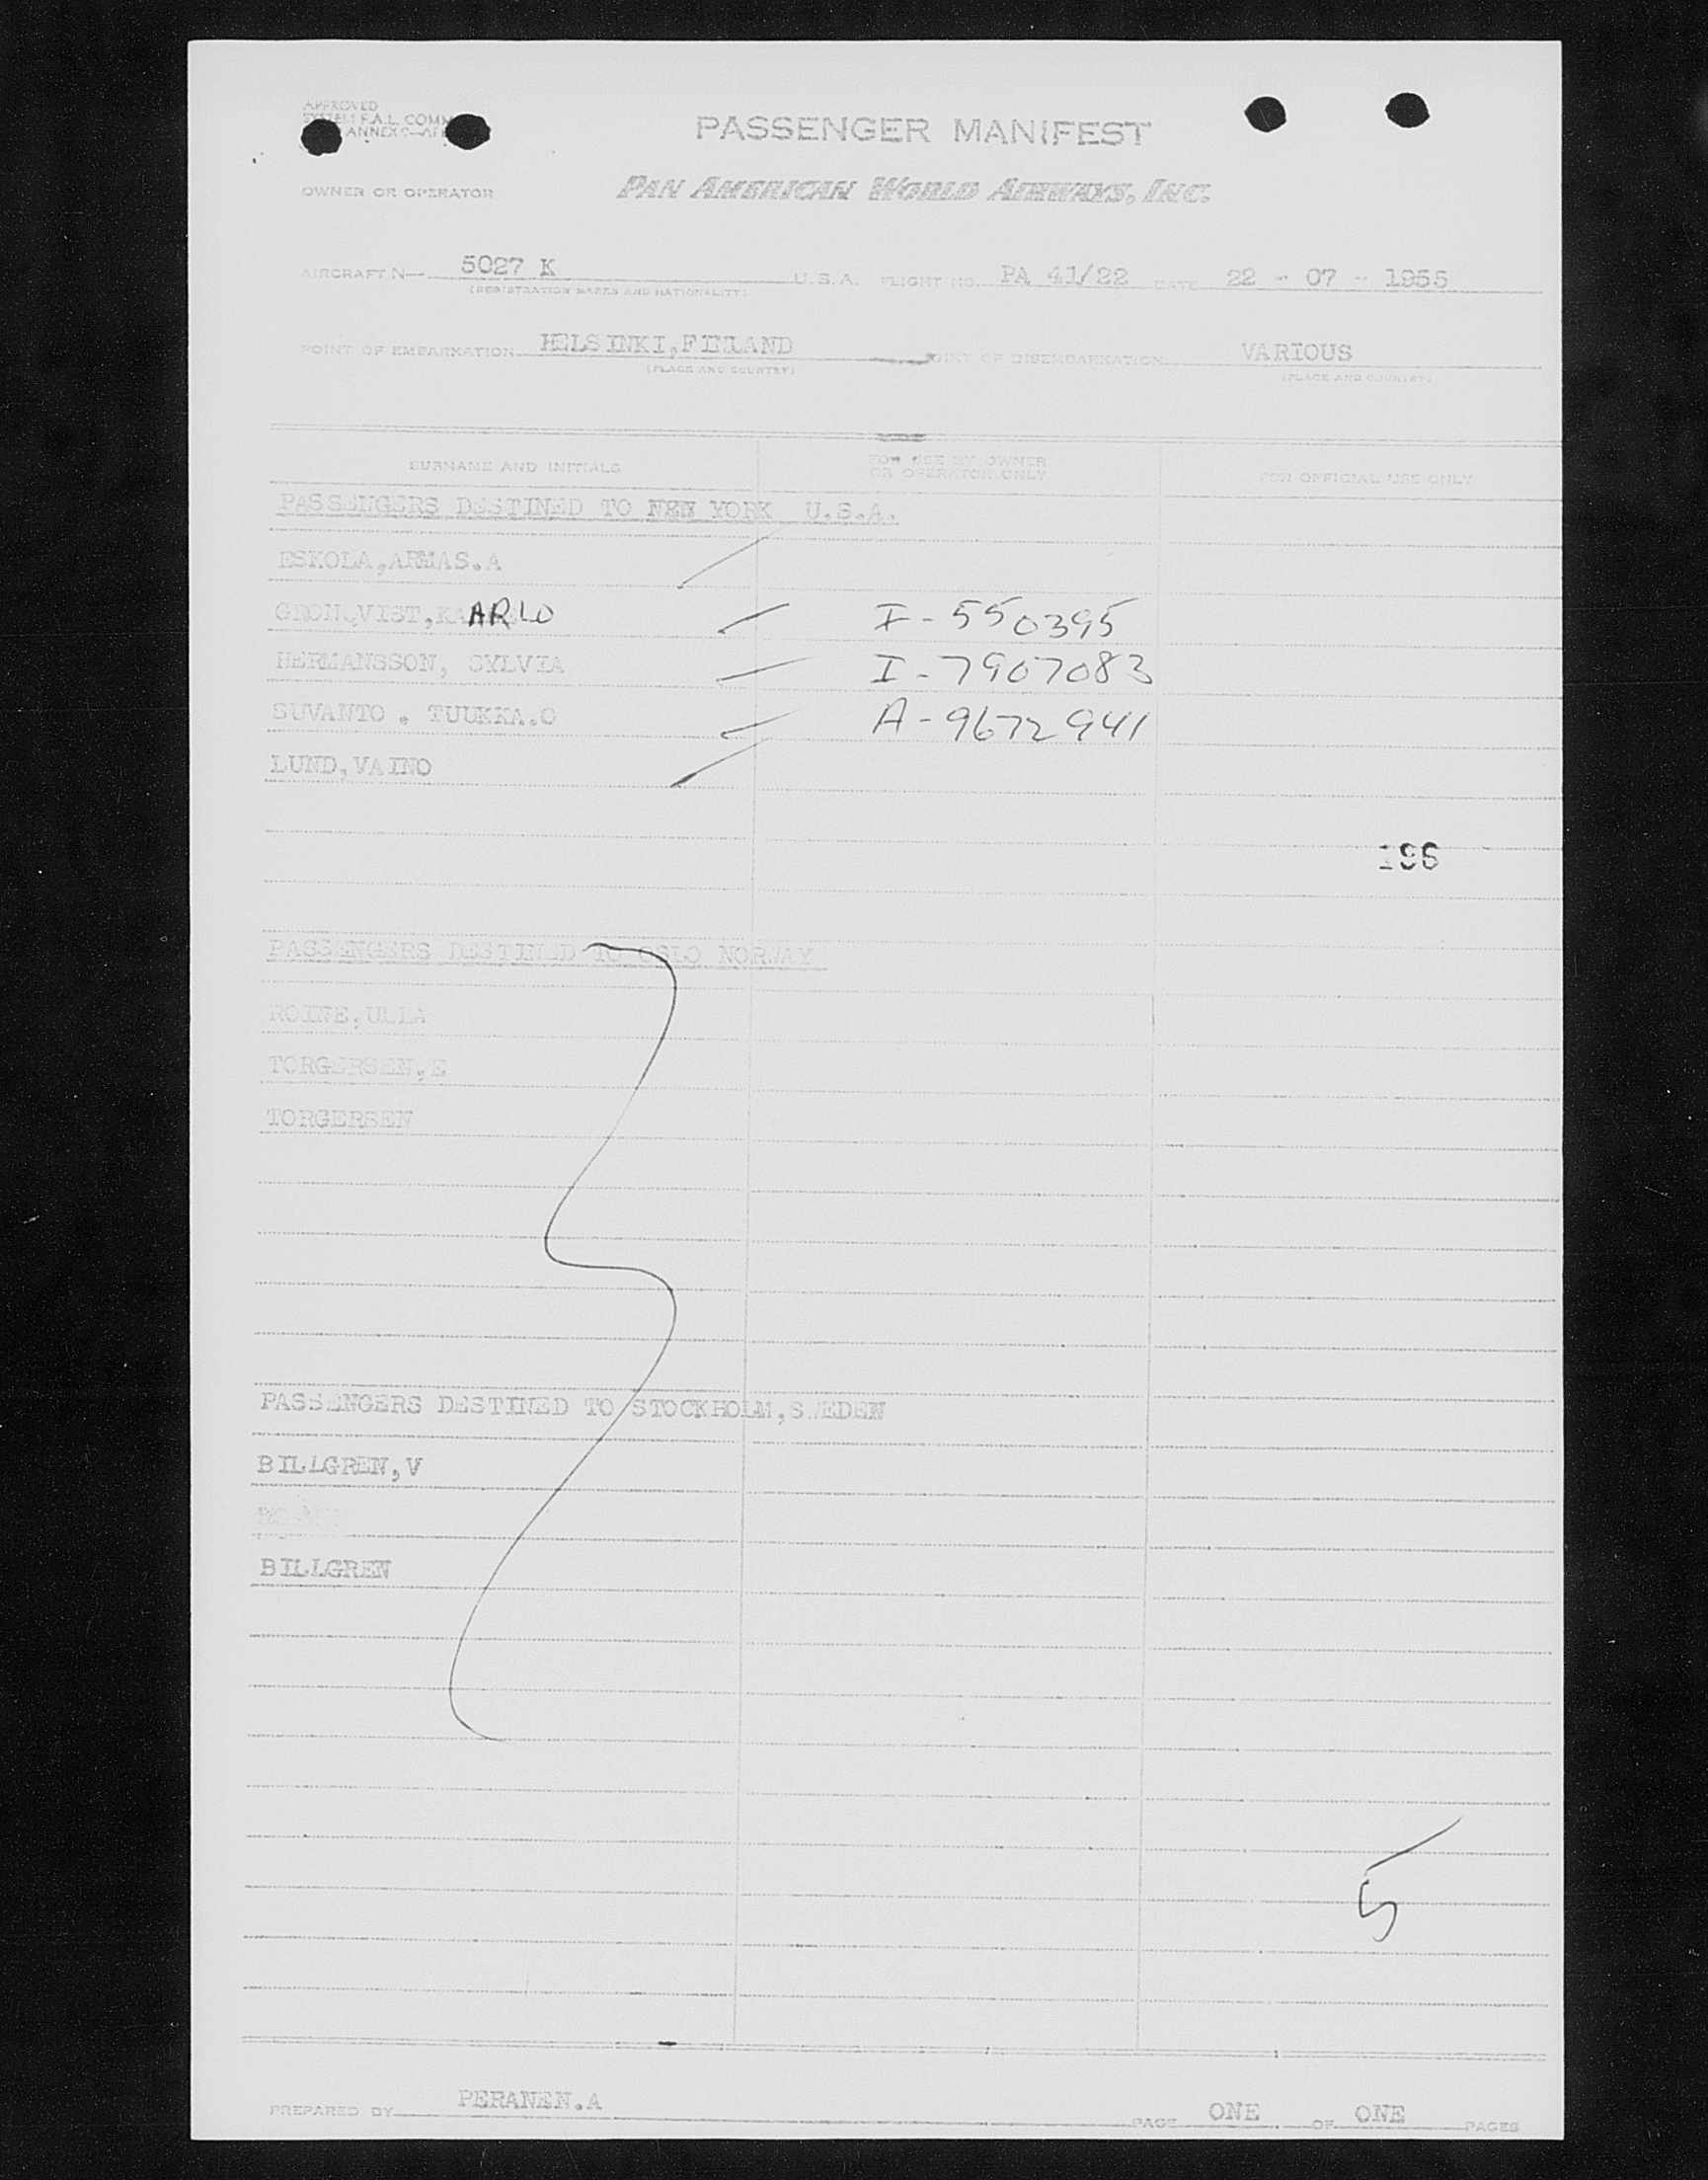 APPROVED
SYSTEM F.A.L. COMM
ANNEX 9—
PASSENGER MANIFEST
OWNER OR OPERATOR
PAN AMERICAN WORLD AIRWAYS, INC.
AIRCRAFT N— 5027 K U.S.A. FLIGHT NO. PA 41/22 DATE 22 - 07 - 1955
(REGISTRATION MARKS AND NATIONALITY)
POINT OF EMBARKATION HELSINKI,FINLAND POINT OF DISEMBARKATION VARIOUS
(PLACE AND COUNTRY) (PLACE AND COUNTRY)
SURNAME AND INITIALS FOR USE BY OWNER OR OPERATOR ONLY FOR OFFICIAL USE ONLY
PASSENGERS DESTINED TO NEW YORK U.S.A.
ESKOLA,ARMAS.A
GRONQVIST,KAARLO I-550395
HERMANSSON, SYLVIA I-7907083
SUVANTO . TUUKKA.O A-9672941
LUND,VAINO
196
PASSENGERS DESTINED TO OSLO NORWAY
ROINE,ULLA
TORGERSEN,E
TORGERSEN
PASSENGERS DESTINED TO STOCKHOLM,SWEDEN
BILLGREN,V
BILLGREN
5
PREPARED BY PERANEN.A PAGE ONE OF ONE PAGES